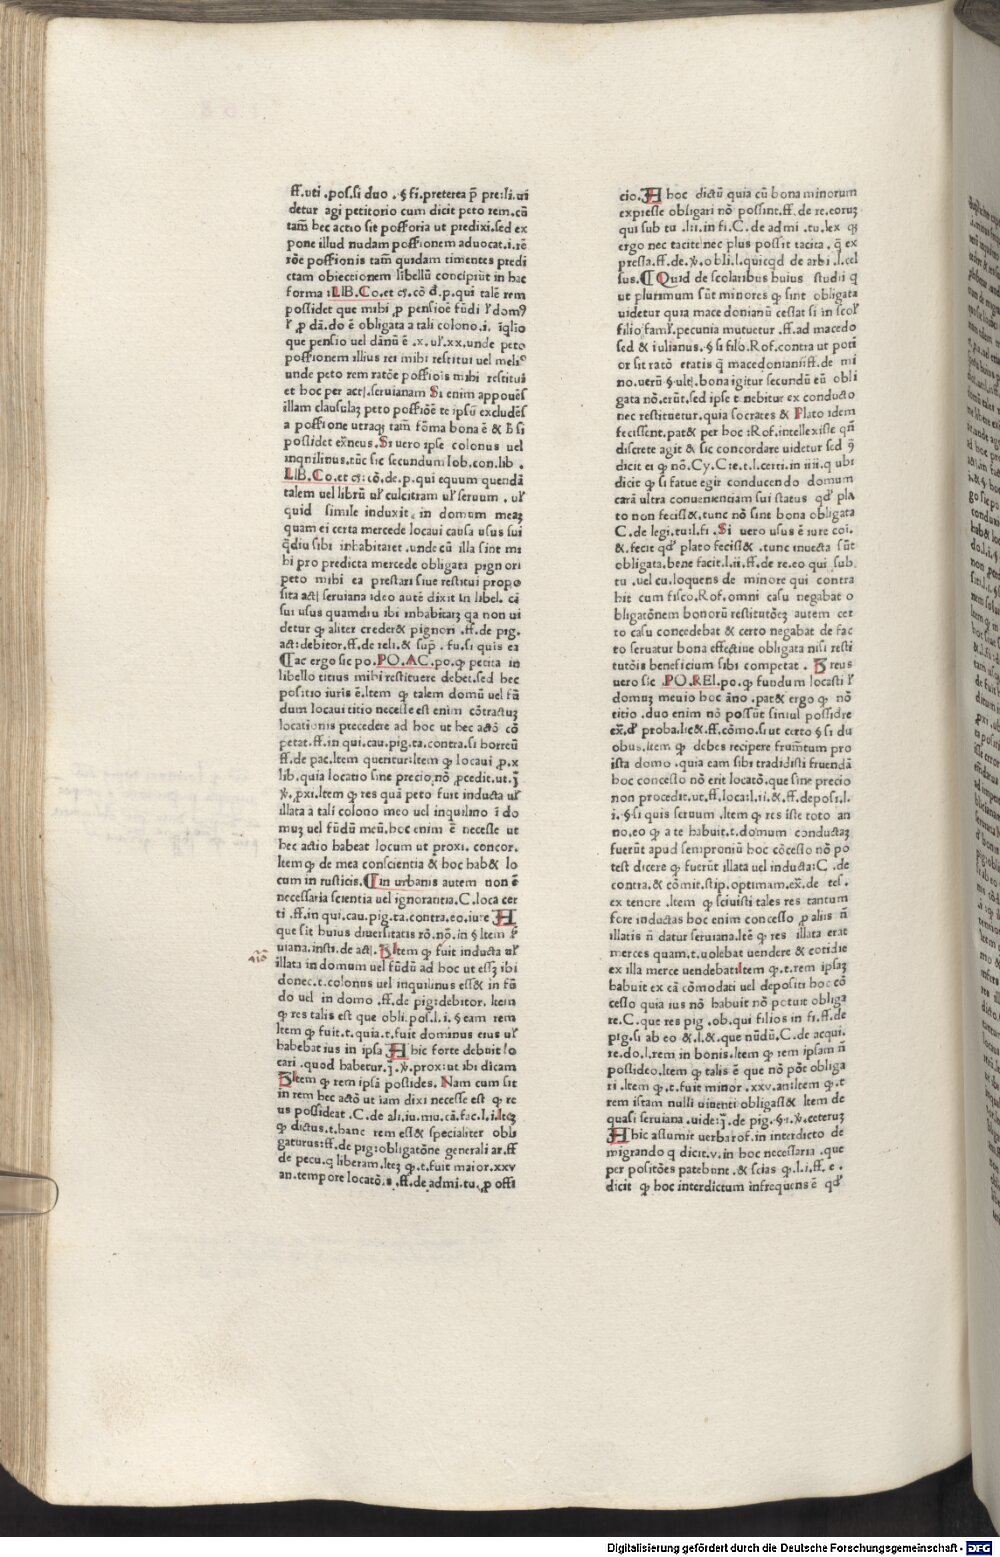 ff.uti .pos.si duo . § fi.preterea p̄ pre:li.ui
detur agi petitorio cum dicit peto rem.cū
tam̄ hec actio sit possoria ut predixi.sed ex
pone illud nudam possionem aduocat.i.rē
rōe possionis tam̄ quidam timentes predi
ctam obiectionem libellū concipiūt in hac
forma :LIB.Co.et c̄:cō d.p.qui talē rem
possidet que mihi ꝓ pensioē fūdi ł dom9
ł ꝓ dā.do ē obligata a tali colono.i. īq̄lio
que pensio uel dānū ē .x.uł.xx.unde peto
possionem illius rei mihi restitui uel meliꝰ
unde peto rem ratōe possiois mihi restitui
et hoc per actꝭ.seruianam Si enim appouēs
illam clausulaꝫ peto possiōē te ipsū excludēs
a possione utraqꝫ tam̄ fōma bona ē & ħ si
possidet exn̄eus.Si uero ipse colonus uel
inquilinus.tūc sic secundum Iob.con.lib .
LIB.Co.et c̄:cō.de.p.qui equum quendā
talem uel librū uł culcitram uł seruum . uł
quid simile induxit. in domum meaꝫ
quam ei certa mercede locaui causa usus sui
q̄diu sibi inhabitaret .unde cū illa sint mi
hi pro predicta mercede obligata pignori
peto mihi ea prestari siue restitui propo
sita actꝭ seruiana ideo autē dixit in libel. cā
sui usus quamdiu ibi inhabitarꝫ qa non ui
detur ꝙ aliter creder& pignori .ff.de pig.
act:debitor.ff.de reli.& sup̄ . fu.si quis ea
¶ ac ergo sic po.PO.AC.po.ꝙ petita in
libello titius mihi restituere debet.sed hec
positio iuris ē.Item ꝙ talem domū uel fū
dum locaui titio necesse est enim cōtractuꝫ
locationis precedere ad hoc ut hec actō cō
petat.ff.in qui.cau.pig.ta.contra.si horreū
ff.de pac.Item queritur:Item ꝙ locaui .p.x
lib.quia locatio sine precio nō ꝓcedit.ut.ȷ̄
.pxi.Item ꝙ res quā peto fuit inducta uł
illata a tali colono meo uel inquilino ī do
muꝫ uel fūdū meū.hoc enim ē necesse ut
hec actio habeat locum ut proxi. concor.
Item ꝙ de mea conscientia & hoc hab& lo
cum in rusticis.¶ in urbanis autem non ē
necessaria scientia uel ignorantia.C.loca cer
ti .ff.in qui.cau.pig.ta.contra.eo.iure H
que sit huius diuersitatis rō.nō.in § Item
uiana.insti.de actꝭ. Item ꝙ fuit inducta uł
illata in domum uel fūdū ad hoc ut essꝫ ibi
donec.t.colonus uel inquilinus ess& in fū
do uel in domo .ff.de pig:debitor. Item
ꝙ res talis est que obli.pos.l.i.§ eam rem
Item ꝙ fuit.t.quia.t.fuit dominus eius uł
habebat ius in ipsa H hic forte debuit lo
cari .quod habetur.ȷ̄. .prox:ut ibi dicam
Item ꝙ rem ipsā possides. Nam cum sit
in rem hec actō ut iam dixi necesse est ꝙ re
us possideat .C.de ali.iu.mu.cā.fac.l.i.Iteꝫ
ꝙ dictus.t.hanc rem est& specialiter obli
gaturus:ff.de pig:obligatōne generali ar.ff
de pecu.q liberam.Iteꝫ ꝙ.t.fuit maior.xxv
an.tempore locatō.s .ff.de admi.tu. ꝓ offi
 aīo
cio. H hoc dictū quia cū bona minorum
expresse obligari nō possint.ff.de re.eoruꝫ
qui sub tu .l.ii.in fi.C.de admi .tu.lex q̄
ergo nec tacite nec plus possit tacita. q̄ ex
pressa.ff.de. .obli.l.quicqd de arbi .l.cel
sus.¶ Quid de scolaribus huius studii q
ut plurimum sūt minores ꝙ sint obligata
uidetur quia macedonianū cessat si in scoł
filio famł.pecunia mutuetur .ff.ad macedo
sed & iulianus. § si filo.Rof.contra ut poti
or sit ratō eratis q̄ macedoniani:ff.de mi
no.uerū §.ulti.bona igitur secundū eū obli
gata nō.erūt.sed ipse tenebitur ex conducto
nec restituetur.quia socrates & Plato idem
fecissent.pat& per hoc :Rof.intellexisse qn̄
discrete agit & sic concordare uidetur sed 9
dicit ei ꝙ nō.Cy.Cte.t.l.certi.in iiii.q ubi
dicit ꝙ si fatue egit conducendo domum
carā ultra conuenientiam sui status qđ pla
to non feciss&.tunc nō sint bona obligata
C.de legi.tu:l.fi .Si uero usus ē iure coī.
&.fecit qđ plato feciss& .tunc inuecta sūt
obligata.bene facit.l.ii.ff.de re.eo qui sub.
tu .uel cu.loquens de minore qui contra
hit cum fisco.Rof.omni casu negabat o
bligatōnem bonorū restitutōeꝫ autem cer
to casu concedebat & certo negabat de fac
to seruatur bona effectiue obligata nisi resti
tutōis beneficium sibi competat . reus
uero sic .PO.REI.po.ꝙ fundum locasti ł
domuꝫ meuio hoc āno .pat& ergo ꝙ nō
titio .duo enim nō possūt simul possidre
ex̄.đ proba.lic&.ff.cōmo.si ut certo § si du
obus.Item ꝙ debes recipere frum̄tum pro
ista domo .quia eam sibi tradidisti fruendā
hoc concesso nō erit locatō.que sine precio
non procedit.ut.ff.loca:l.ii.&.ff.deposi.l.
i. §·si quis seruum .Item ꝙ res iste toto an
no.eo ꝙ a te habuit.t.domum conductaꝫ
fuerūt apud semproniū hoc cōcesso nō po
test dicere ꝙ fuerūt illata uel inducta:C .de
contra.& cōmit.stip.optimam.ex̄.de tes.
ex tenore .Item ꝙ sciuisti tales res tantum
fore inductas hoc enim concesso ꝑ alus n̄
illatis n̄ datur seruiana.Itē ꝙ res illata erat
merces quam.t.uolebat uendere & cotidie
ex illa merce uendebat:Item ꝙ.t.rem ipsaꝫ
habuit ex cā cōmodati uel depositi hoc cō
cesso quia ius nō habuit nō potuit obliga
re.C.que res pig .ob.qui filios in fi.ff.de
pig.si ab eo &.l.&.que nūdū.C.de acqui.
re.do.l.rem in bonis.Item ꝙ rem ipsam n̄
possideo.Item ꝙ talis ē que nō pōt obliga
ri .Item ꝙ.t.fuit minor .xxv.an:Item ꝙ.t
rem istam nulli uiuenti obligass& Item de
quasi seruiana .uide:ȷ̄.de pig.§·i. .ceteruꝫ
H hic assumit uerba rof.in interdicto de
migrando q dicit.v.in hoc necessaria .que
per positōes patebunt .& scias ꝙ.l.i.ff. e .
dicit ꝙ hoc interdictum infrequens ē qđ
Digitalisierung gefördert durch die Deutsche Forschungsgemeinschaft - DFG